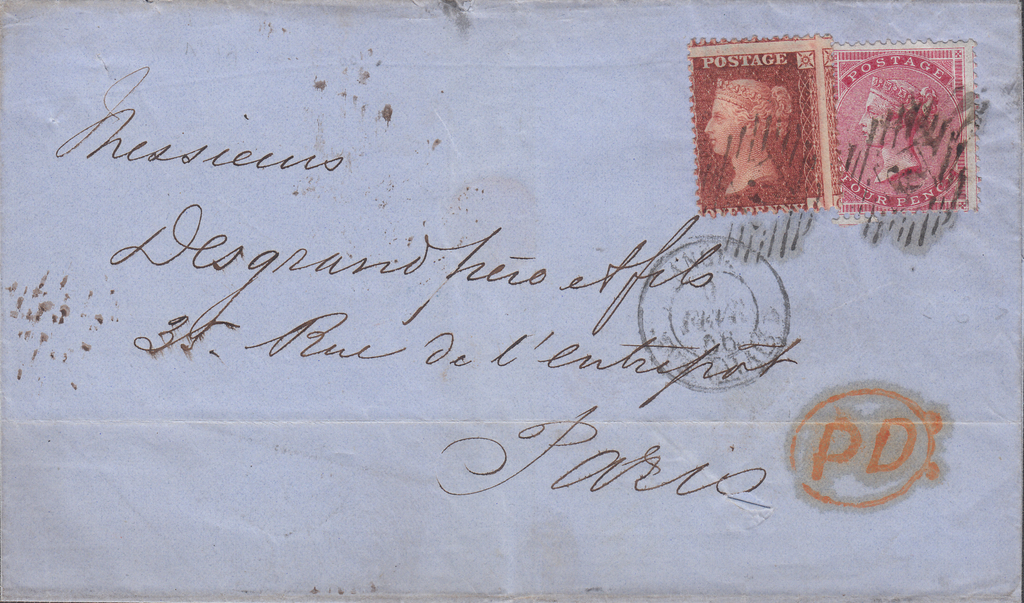 POSTAGE
ONE PENNY
POSTAGE
FOUR PENCE
Messieurs
Desgrand père & fils
35. Rue de l'entrepôt
Paris
PD